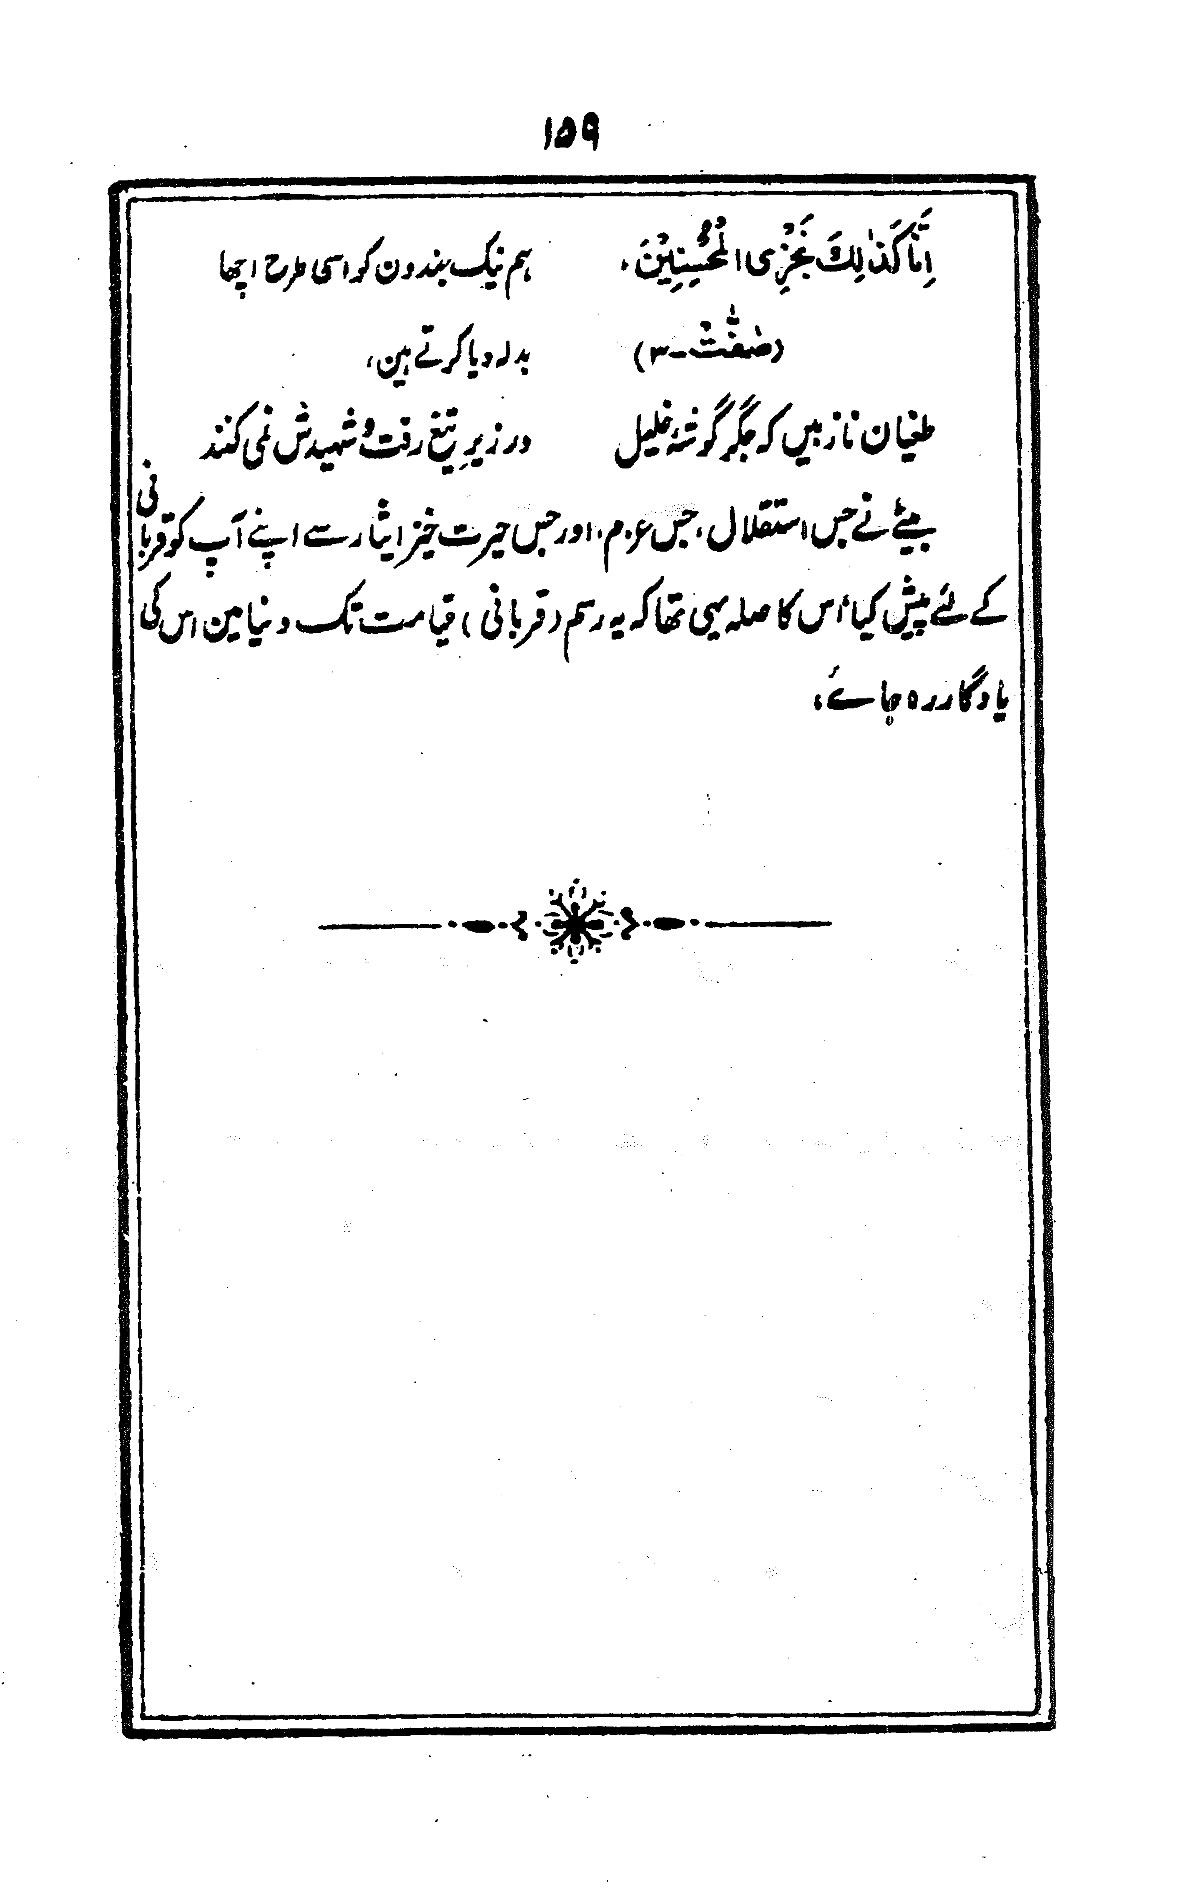 ۱۵۹
اِنَّا كَذٰلِكَ نَجْزِی الْمُحْسِنِیْنَ، ہم نیک بندون کو اسی طرح اچھا
(صٰفّٰت-۳) بدلہ دیا کرتے ہین،
طغیان ناز بین کہ جگر گوشۂ خلیل در زیرِ تیغ رفت و شہیدش نمی کنند
بیٹے نے جس استقلال، جس عزم، اور جس حیرت خیز ایثار سے اپنے آپ کو قربانی
کے لئے پیش کیا اُس کا صلہ یہی تھا کہ یہ رسم (قربانی) قیامت تک دنیا مین اس کی
یادگار رہ جائے،